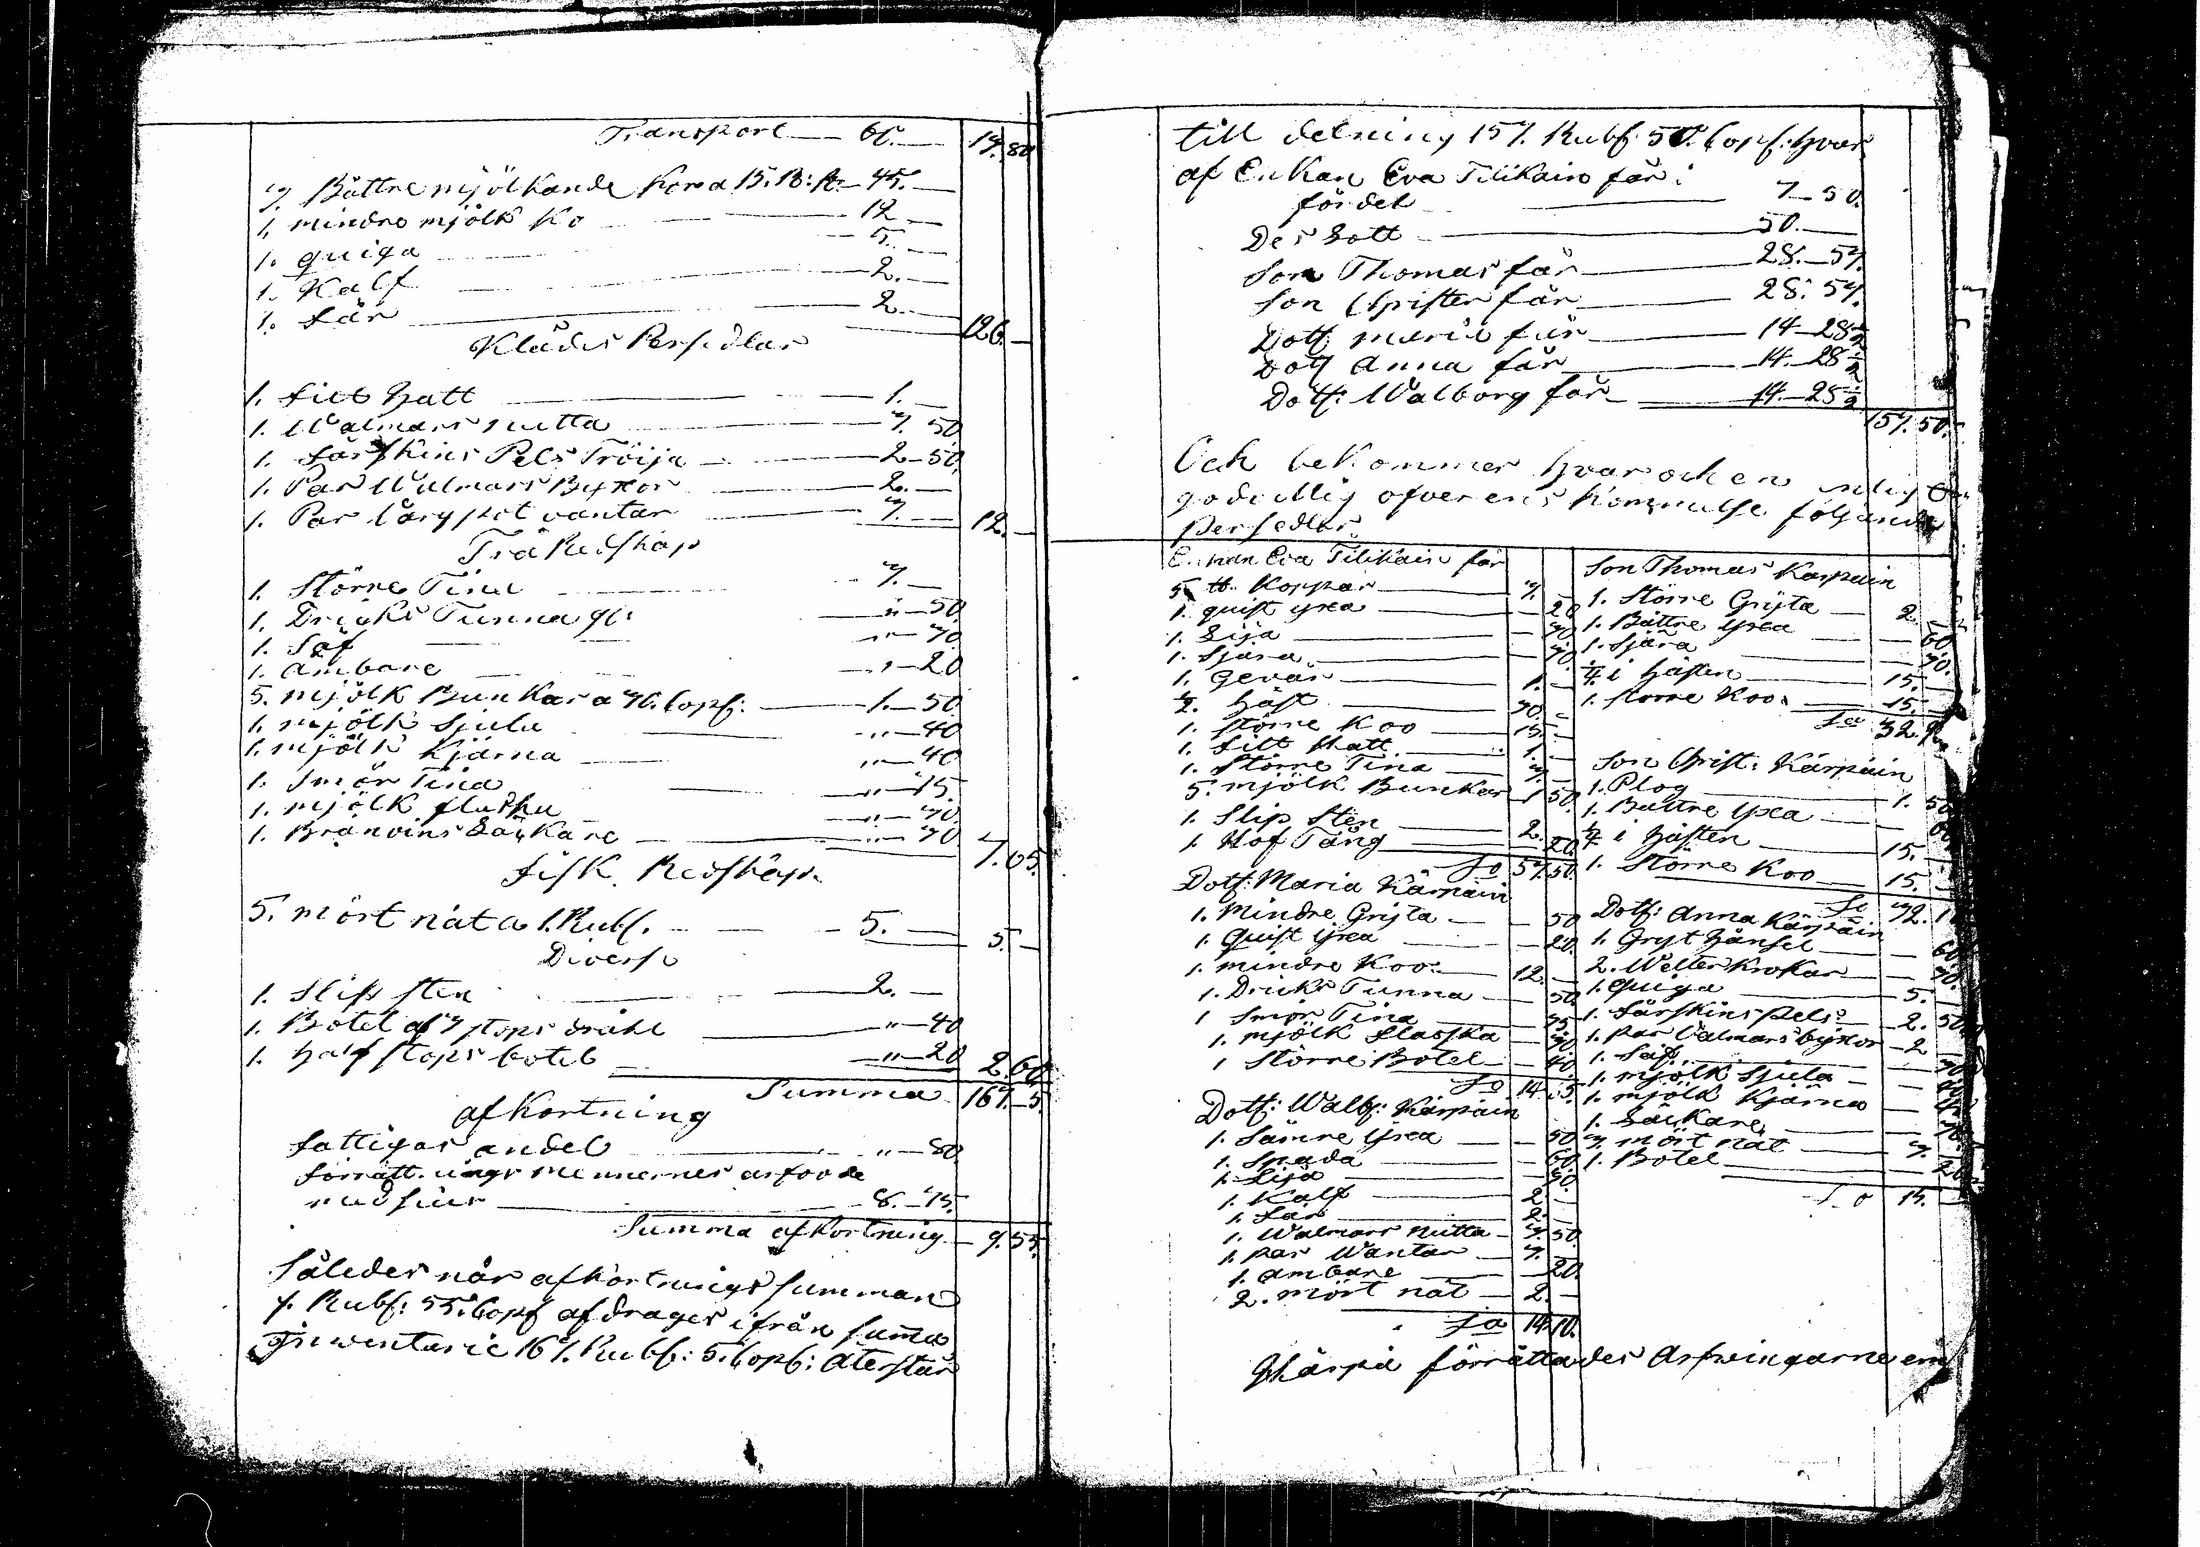 Transport — 60. — 13. 80
3 Bättre mjölkande Kor a 15. R: st. — 45. —
1. mindre mjölk Ko — 12 —
1. quiga — 5. —
1. Kalf — 2. —
1. får — 2. — 126. —
Klädes Persedlar
1. filt hatt — 1. —
1. Walmars mutta — 3. 50
1. fårskins Pels Tröija — 2 — 50.
1. Par Walmars Byxor — 2. —
1. Par vargpot vantar — 3. — 12. —
Trä Redskap
1. Större Tina — 3. —
1. Dricks Tunna — " — 50.
1. Såf — " — 30
1. ambare — " — 20
5. mjölk Bunkar a 30. Copf: — 1. — 50
1. mjölk Sjula — " — 40
1. mjölk Kjärna — " — 40
1. Smör Tina — " — 15.
1. mjölk flaska — " — 30.
1. Bränvins Läckare — " — 30 7. 05.
fisk Redskap.
5. mört nät a 1. Rub. — 5. — 5. —
Diverse
1. Slip sten — 2. —
1. Botel af 3 stops drähl — " — 40
1. half stops botel — " — 20 2. 60
Summa 167. — 5.
afkortning
fattigas andel — " — 80
förrättnings mennernes arfvode
8. — 75.
Summa afkortning — 9. 55.
Således när afkortnings summan
9. Rubl: 55. Copf afdrages ifrån summa
Inventarie 167. Rubl: 5. Copf: återstår
till delning 157. Rubl. 50. Copf: hvar
af Enkan Eva Tilikain får i
fördel — 7 — 50.
Des Lott — 50. —
Son Thomas får — 28. — 57.
Son Christer får — 28. 57.
Dott. maria får — 14 — 28½
Dott Anna får — 14. — 28½
Dott: Walborg får — 14. — 28½
157. 50.
Och bekommer hvar och en
godvillig öfverenskommelse följande
Persedlar
Enkan Eva Tilikain får
5 ℔. Koppar — 3. —
1. quist yxa — 20
1. Lija — 30
1. Sjära — 30.
1. Gevär — 1. —
½. häst — 30. —
1. Större Koo — 15. —
1. filt hatt — 1. —
1. Större Tina — 3. —
5. mjölk Bunkar — 1 50.
1. Slip Sten — 2. —
1. Hof Tång — 20.
Sa 57. 50.
Dott: Maria Kärpäin
1. Mindre Gryta — 50
1. Quist yxa — 20.
1. mindre Koo — 12. —
1. Dricks Tunna — 50.
1 Smör Tina — 15
1. mjölk flaska — 30
1 Större Botel — 40.
Sa 14. 5.
Dott: Walb: Kärpäin
1. Sämre yxa — 50
1. Spada — 60
1. Lija — 30
1. Kalf — 2. —
1. får — 2. —
1. Walmars mutta — 3. 50
1. par Wantar — 3. —
1. ambare — 20.
2. mört nät — 2. —
Sa 14. 10.
Son Thomas Karpain
1. Större Gryta — 2. —
1. Bättre yxa — 60.
1. Sjära — 30.
¼ i hästen — 15. —
1. större Koo. — 15. —
Sa 32.
Son Christ: Kärpäin
1. Plog — 1. 50
1. Bättre yxa — 60
¼ i hästen — 15. —
1. Större Koo — 15. —
Sa 32. 1
Dott: Anna Kärpäin
1. Gryt hänsel — 60
2. Welter Krokar — 30.
1. quiga — 5. —
1. fårskins pels — 2. 50
1. par Valmars byxor — 2 —
1. Såf — 30
1. mjölk Sjula — 40
1. mjölk Kjärna — 40
1. Läckare — 30
3. mört nät — 3. —
1. Botel — 20
Sa 15. —
Härpå förrättades Arfwingarne em